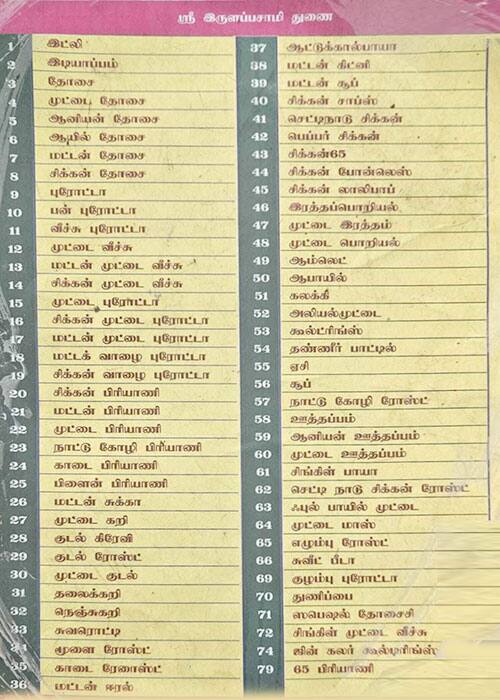 ஸ்ரீ இருளப்பசாமி துணை
1 இட்லி
2 இடியாப்பம்
3 தோசை
4 முட்டை தோசை
5 ஆனியன் தோசை
6 ஆயில் தோசை
7 மட்டன் தோசை
8 சிக்கன் தோசை
9 புரோட்டா
10 பன் புரோட்டா
11 வீச்சு புரோட்டா
12 முட்டை வீச்சு
13 மட்டன் முட்டை வீச்சு
14 சிக்கன் முட்டை வீச்சு
15 முட்டை புரோட்டா
16 சிக்கன் முட்டை புரோட்டா
17 மட்டன் முட்டை புரோட்டா
18 மட்டக் வாழை புரோட்டா
19 சிக்கன் வாழை புரோட்டா
20 சிக்கன் பிரியாணி
21 மட்டன் பிரியாணி
22 முட்டை பிரியாணி
23 நாட்டு கோழி பிரியாணி
24 காடை பிரியாணி
25 பிளைன் பிரியாணி
26 மட்டன் சுக்கா
27 முட்டை கறி
28 குடல் கிரேவி
29 குடல் ரோஸ்ட்
30 முட்டை குடல்
31 தலைக்கறி
32 நெஞ்சுகறி
33 சுவரொட்டி
34 மூளை ரோஸ்ட்
35 காடை ரேனாஸ்ட்
36 மட்டன் ஈரல்
37 ஆட்டுக்கால்பாயா
38 மட்டன் கிட்னி
39 மட்டன் சூப்
40 சிக்கன் சாப்ஸ்
41 செட்டிநாடு சிக்கன்
42 பெப்பர் சிக்கன்
43 சிக்கன்65
44 சிக்கன் போன்லெஸ்
45 சிக்கன் லாலிபாப்
46 இரத்தப்பொறியல்
47 முட்டை இரத்தம்
48 முட்டை பொறியல்
49 ஆம்லெட்
50 ஆபாயில்
51 கலக்கீ
52 அலியல்முட்டை
53 கூல்ட்ரிங்ஸ்
54 தண்ணீர் பாட்டில்
55 ஏசி
56 சூப்
57 நாட்டு கோழி ரோஸ்ட்
58 ஊத்தப்பம்
59 ஆனியன் ஊத்தப்பம்
60 முட்டை ஊத்தப்பம்
61 சிங்கிள் பாயா
62 செட்டி நாடு சிக்கன் ரோஸ்ட்
63 ஃபுல் பாயில் முட்டை
64 முட்டை மாஸ்
65 எழும்பு ரோஸ்ட்
66 சுவீட் பீடா
69 குழம்பு புரோட்டா
70 துணிப்பை
71 ஸ்பெஷல் தோசைசி
72 சிங்கிள் முட்டை வீச்சு
74 ஜின் கலர் கூல்டிரிங்ஸ்
79 65 பிரியாணி